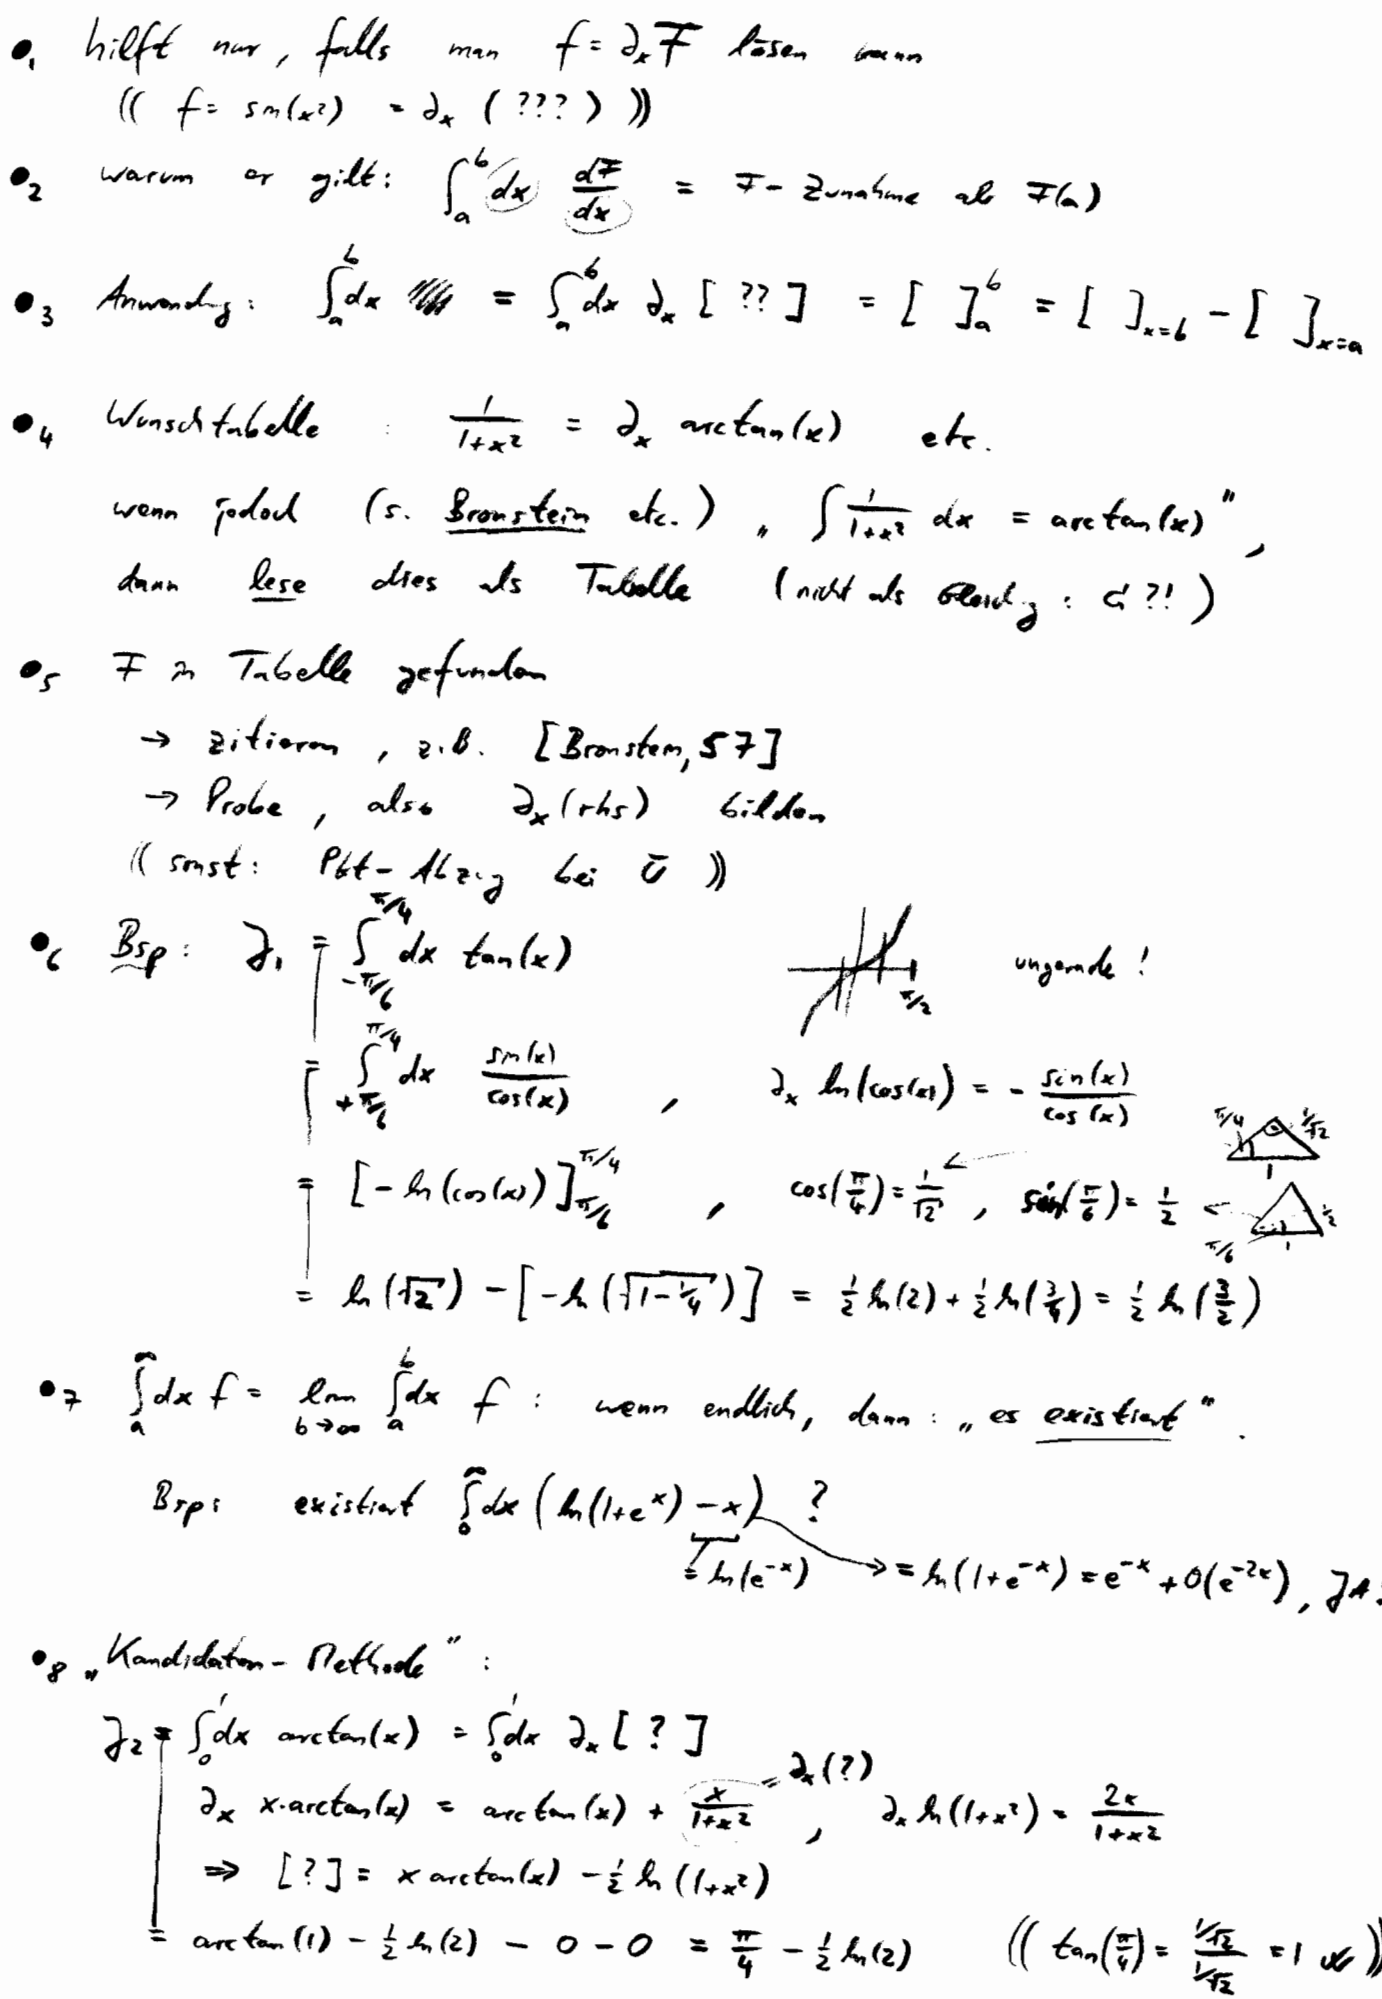 •₁ hilft nur, falls man f = ∂ₓF lösen kann
(( f = sin(x²) = ∂ₓ ( ??? ) ))
•₂ warum er gilt: ∫ₐᵇ dx dF/dx = F-Zunahme ab F(a)
•₃ Anwendg: ∫ₐᵇ dx = ∫ₐᵇ dx ∂ₓ [ ?? ] = [ ]ₐᵇ = [ ]ₓ₌b − [ ]ₓ₌ₐ
•₄ Wunschtabelle : 1/(1+x²) = ∂ₓ arctan(x) etc.
wenn jedoch (s. Bronstein etc.) „ ∫ 1/(1+x²) dx = arctan(x) ",
dann lese dies als Tabelle (nicht als Gleichg : ?!)
•₅ F in Tabelle gefunden
→ zitieren, z.B. [Bronstein, 57]
→ Probe, also ∂ₓ(rhs) bilden
(( sonst: Pkt-Abzug bei Ü ))
•₆ Bsp: J₁ = ∫_{-π/6}^{π/4} dx tan(x) π/2 ungerade!
= ∫_{+π/6}^{π/4} dx sin(x)/cos(x) , ∂ₓ ln(cos(x)) = − sin(x)/cos(x)
π/4 1/√2 1
= [−ln(cos(x))]_{π/6}^{π/4} , cos(π/4) = 1/√2 , sin(π/6) = 1/2 ← π/6 1/2 1
= ln(√2) − [−ln(√(1−1/4))] = ½ ln(2) + ½ ln(3/4) = ½ ln(3/2)
•₇ ∫ₐ^∞ dx f = lim_{b→∞} ∫ₐᵇ dx f : wenn endlich, dann: „es existiert".
Bsp: existiert ∫₀^∞ dx (ln(1+eˣ) − x) ?
= ln(e⁻ˣ) → = ln(1+e⁻ˣ) = e⁻ˣ + O(e⁻²ˣ), JA!
•₈ „Kandidaten-Methode" :
J₂ = ∫₀¹ dx arctan(x) = ∫₀¹ dx ∂ₓ [ ? ]
∂ₓ x·arctan(x) = arctan(x) + x/(1+x²) = ∂ₓ(?) , ∂ₓ ln(1+x²) = 2x/(1+x²)
⇒ [?] = x arctan(x) − ½ ln(1+x²)
= arctan(1) − ½ ln(2) − 0 − 0 = π/4 − ½ ln(2) (( tan(π/4) = (1/√2)/(1/√2) = 1 ))